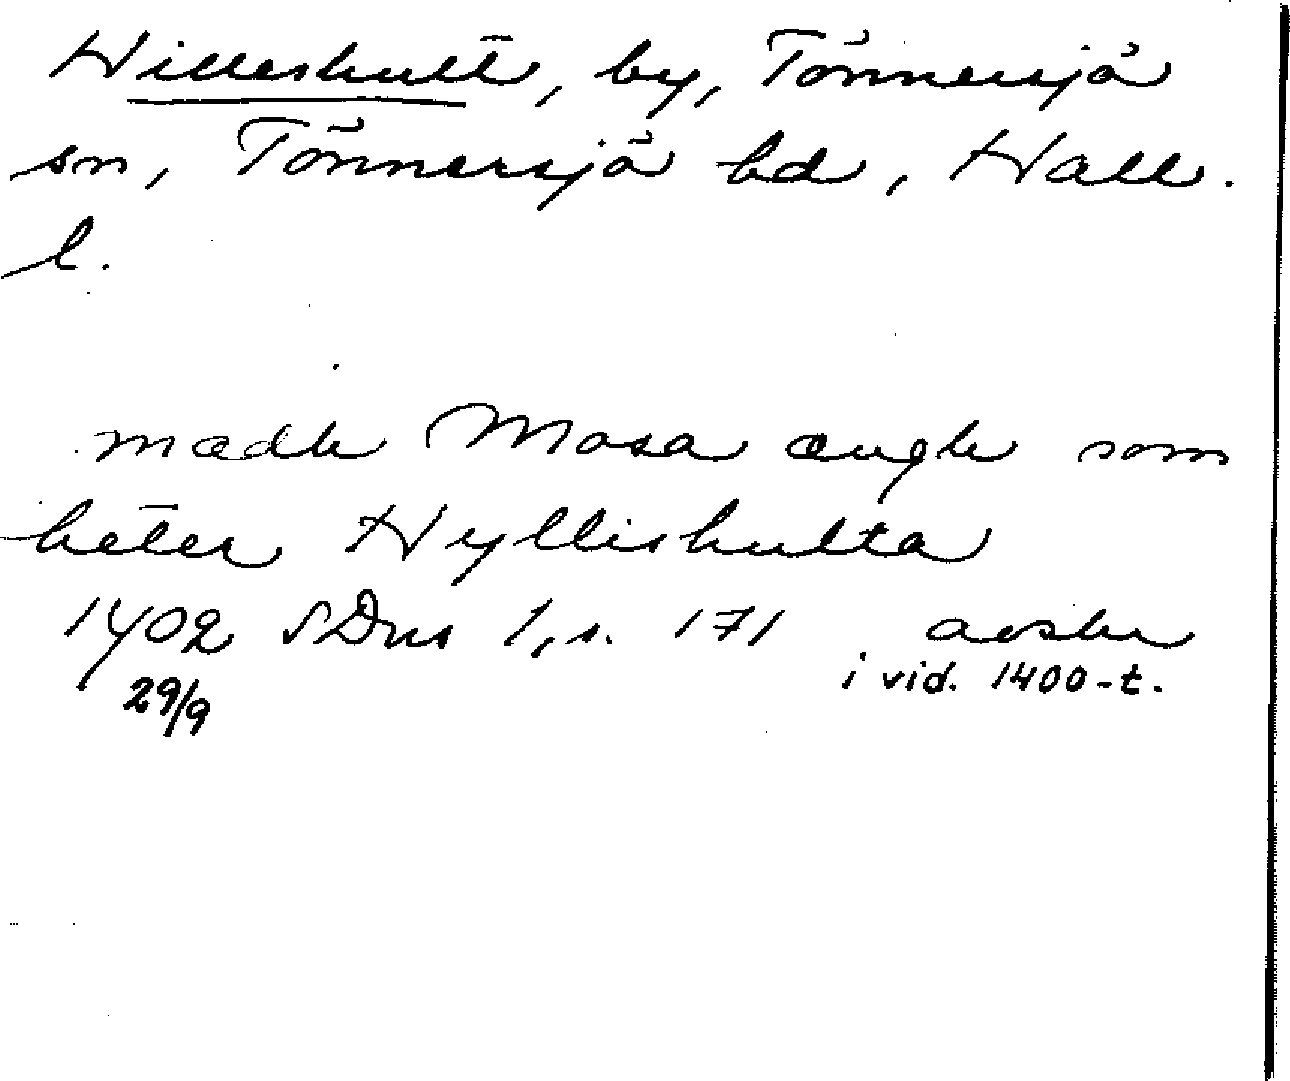 Willeshult, by, Tönnersjö
sn, Tönnersjö hd, Hall.
l.
mædh Mosa ængh som
heter Hyllishulta
1402 SDns 1, s. 171 avskr
29/9 i vid. 1400-t.